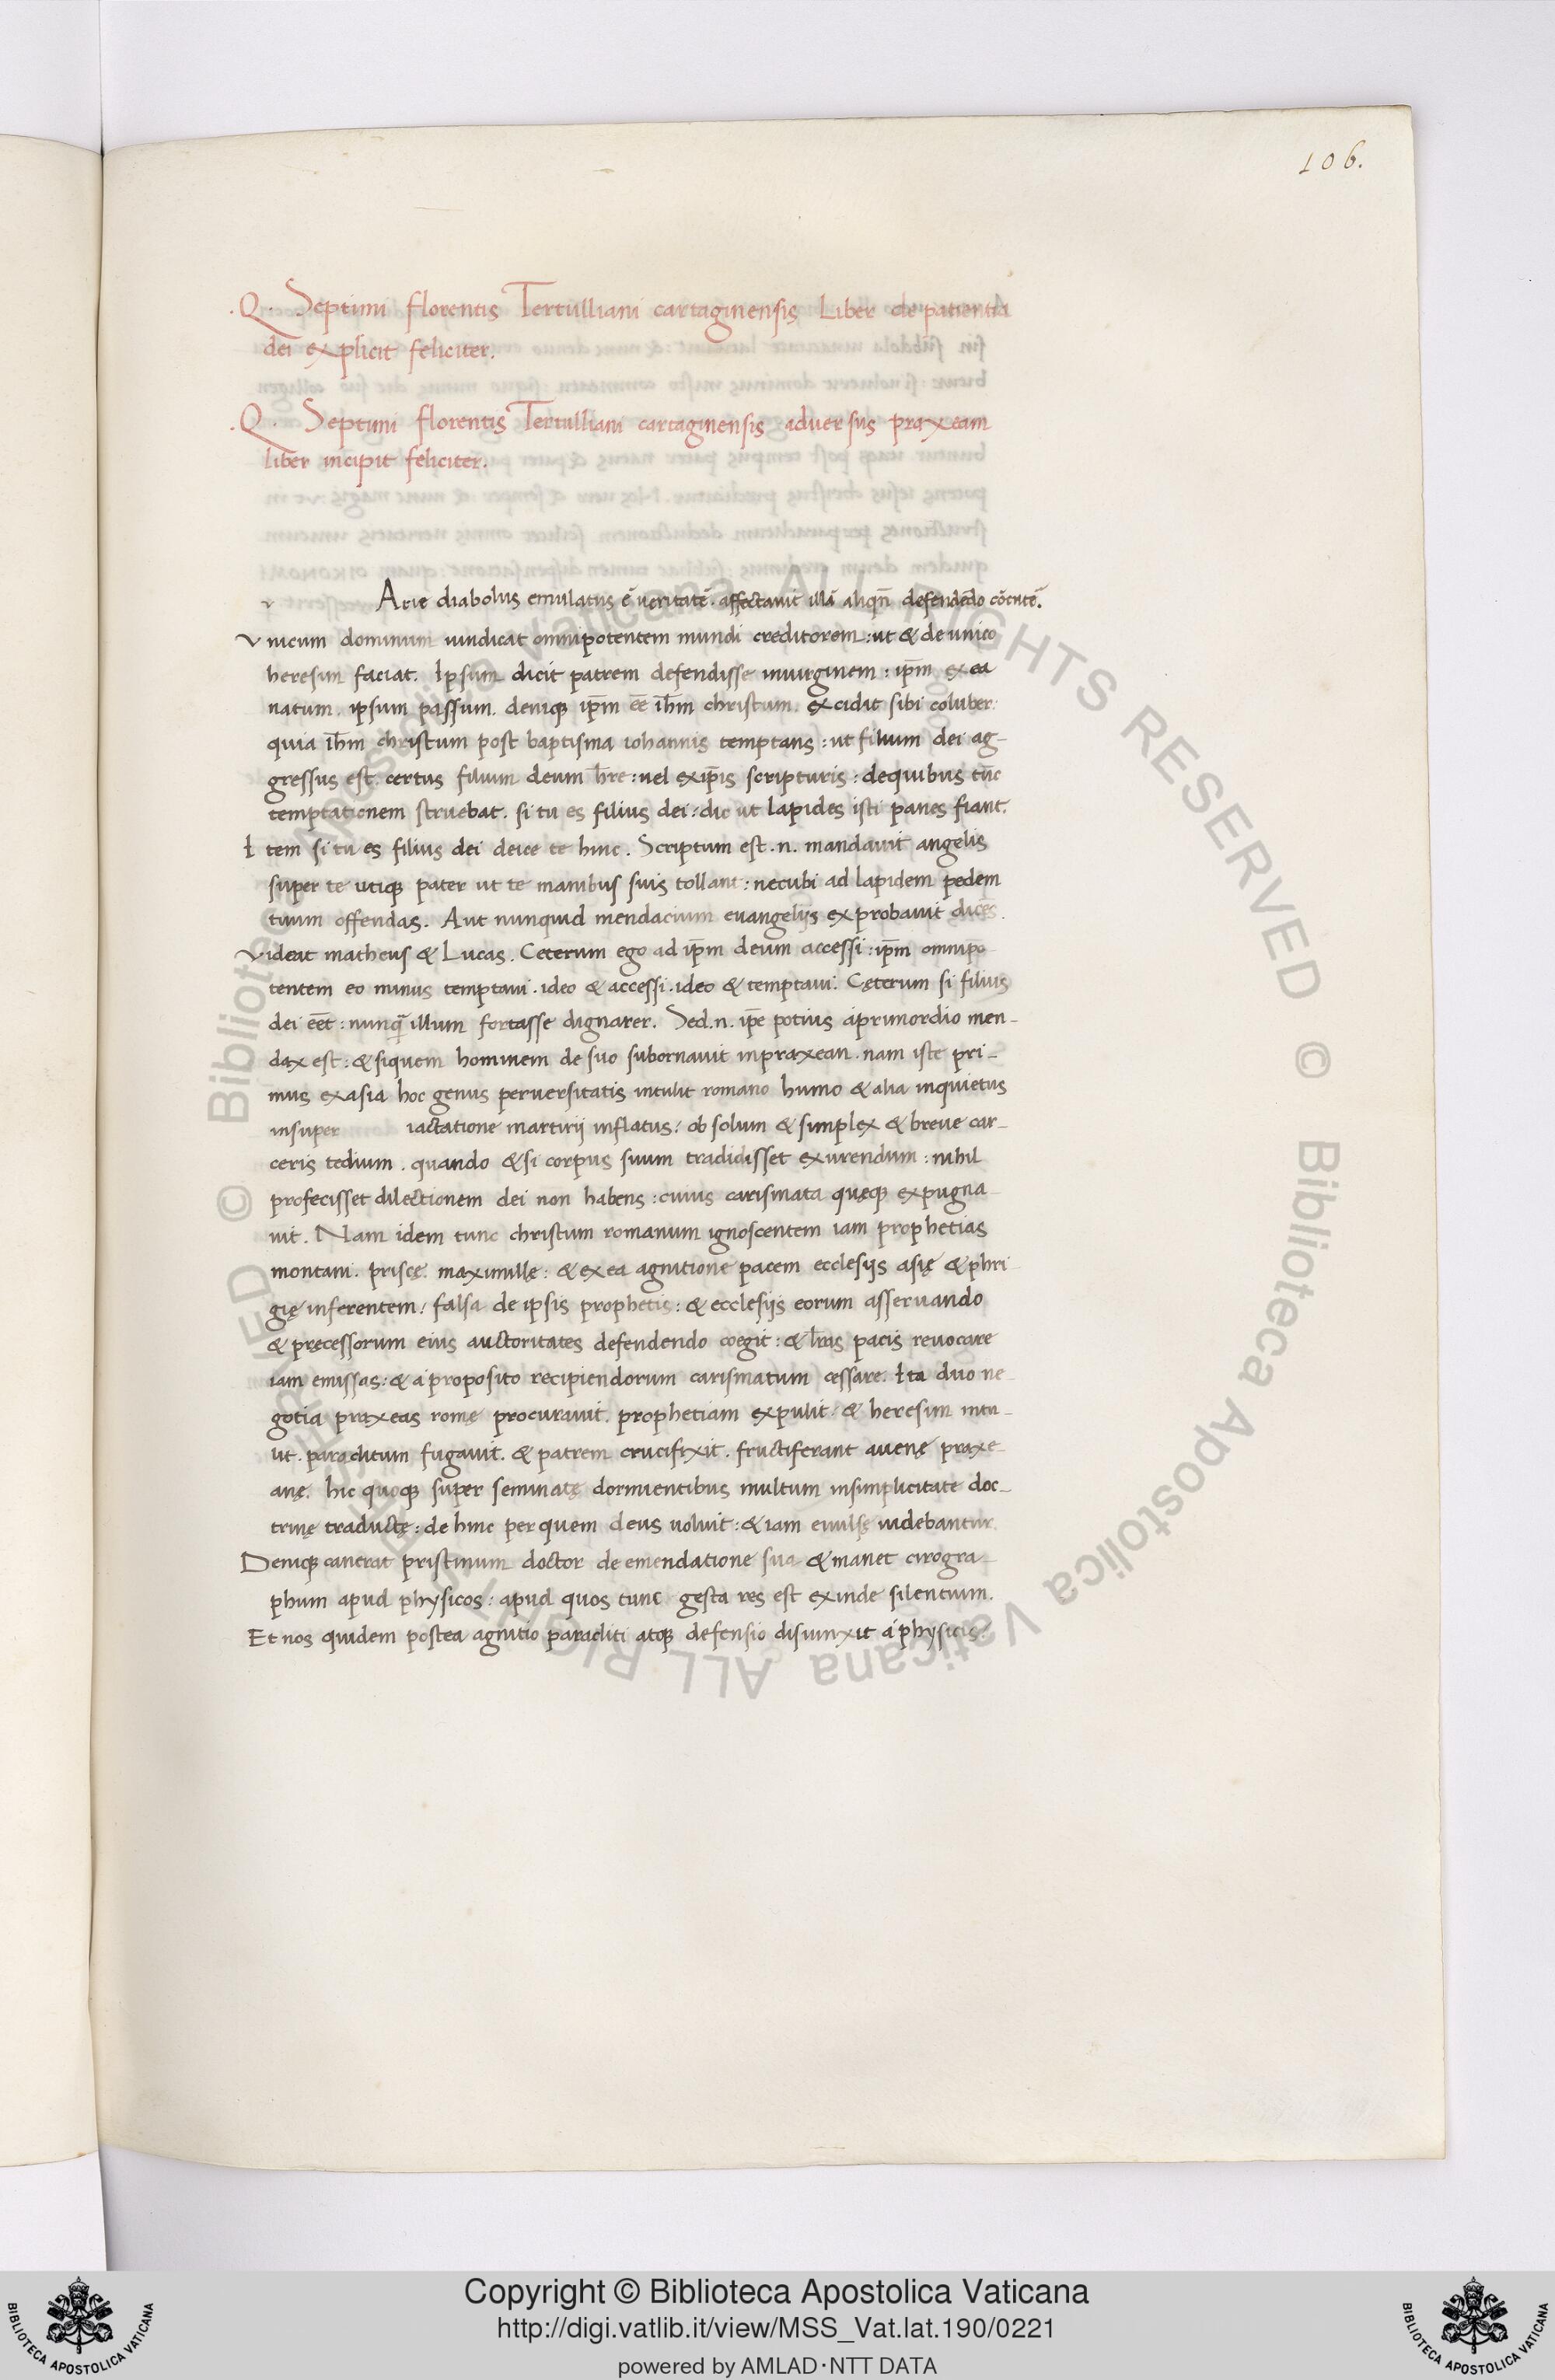 106.
.Q. Septimi florentis Tertulliani cartaginensis Liber de patientia
dei explicit feliciter.
.Q. Septimi florentis Tertulliani cartaginensis adversus praxeam
liber incipit feliciter.
v Arie diabolus emulatus ē ueritatē. affectauit illā aliqñ defendēdo cōcutē.
Vnicum dominum uindicat omnipotentem mundi creditorem: ut & de unico
heresim faciat. Ipsum dicit patrem defendisse inuirginem: ip̄m ex ea
natum. ipsum passum. deniqꝫ ip̄m eē ih̄m christum. excidit sibi coluber.
quia ih̄m christum post baptisma iohannis temptans: ut filium dei ag-
gressus est. certus filium deum h̄re: uel exip̄is scripturis: dequibus tūc
temptationem struebat. si tu es filius dei: dic ut lapides isti panes fiant.
Item si tu es filius dei deice te hinc. Scriptum est .n. mandauit angelis
super te utiqꝫ pater ut te manibus suis tollant: necubi ad lapidem pedem
tuum offendas. Aut nunquid mendacium euangelijs exprobauit dicēs.
Videat matheus & Lucas. Ceterum ego ad ip̄m deum accessi: ip̄m omnipo-
tentem eo minus temptaui. ideo & accessi. ideo & temptaui. Cęterum si filius
dei eēt: nunq̄ illum fortasse dignarer. Sed .n. ip̄e potius aprimordio men-
dax est: & siquem hominem de suo subornauit inpraxean. nam iste pri-
mus exasia hoc genus peruersitatis intulit romano humo & alia inquietus
insuper iactatione martirij inflatus: ob solum & simplex & breue car-
ceris tedium. quando & si corpus suum tradidisset exurendum: nihil
profecisset dilectionem dei non habens: cuius carismata quęqꝫ expugna-
uit. Nam idem tunc christum romanum ignoscentem iam prophetias
montani. priscę. maximillę: & ex ea agnitione pacem ecclesijs asię & phri
gię inferentem: falsa de ipsis prophetis: & ecclesijs eorum asseruando
& precessorum eius auctoritates defendendo coegit: & l̄ras pacis reuocare
iam emissas: & a proposito recipiendorum carismatum cessare. Ita duo ne-
gotia praxeas romę procurauit. prophetiam expulit. & heresim intu-
lit. paraclitum fugauit. & patrem crucifixit. fructiferant auenę praxe-
anę. hic quoqꝫ super seminatę dormientibus multum insimplicitate doc-
trinę traductę: de hinc per quem deus uoluit: & iam euulsę uidebantur.
Deniqꝫ cauerat pristinum doctor de emendatione sua & manet cirogra-
phum apud physicos: apud quos tunc gesta res est exinde silentium.
Et nos quidem postea agnitio paracliti atqꝫ defensio disiunxit a physicis.
© Biblioteca Apostolica Vaticana ALL RIGHTS RESERVED © Biblioteca Apostolica Vaticana ALL RIGHTS RESERVED
Copyright © Biblioteca Apostolica Vaticana
http://digi.vatlib.it/view/MSS_Vat.lat.190/0221
powered by AMLAD·NTT DATA
BIBLIOTECA APOSTOLICA VATICANA
BIBLIOTECA APOSTOLICA VATICANA